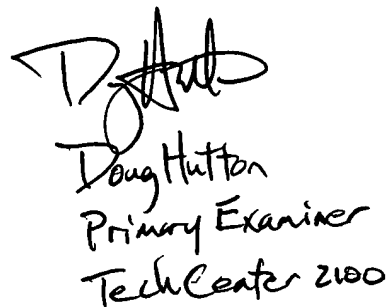 Doug Hutton
Primary Examiner
Tech Center 2100